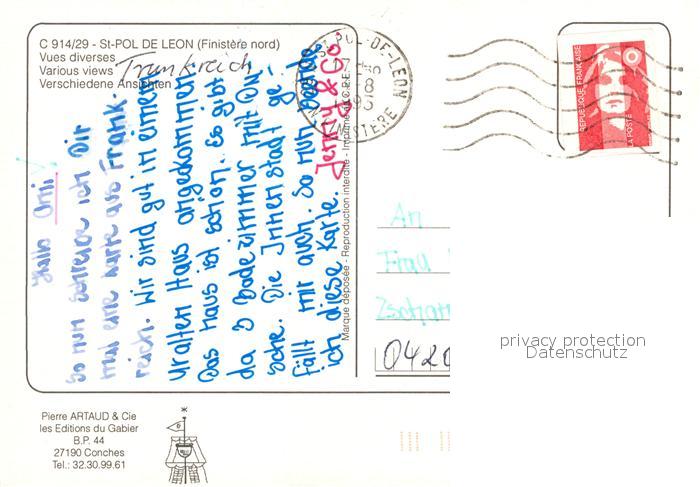 C 914/29 - St-POL DE LEON (Finistère nord)
Vues diverses
Various views
Verschiedene Ansichten
Frankreich
Hallo Omi!
So nun schreibe ich Dir
mal eine Karte aus Frank-
reich. Wir sind gut in einem
uralten Haus angekommen.
Das Haus ist schön. Es gibt
da 3 Badezimmer mit Du-
sche. Die Innenstadt ge-
fällt mir auch. So nun beende
ich diese Karte. Jenny & Co.
Marque déposée - Reproduction interdite -
ST POL-DE-LEON
FINISTERE
REPUBLIQUE FRANÇAISE
LA POSTE
An
Frau
0420
privacy protection
Datenschutz
Pierre ARTAUD & Cie
les Editions du Gabier
B.P. 44
27190 Conches
Tel.: 32.30.99.61